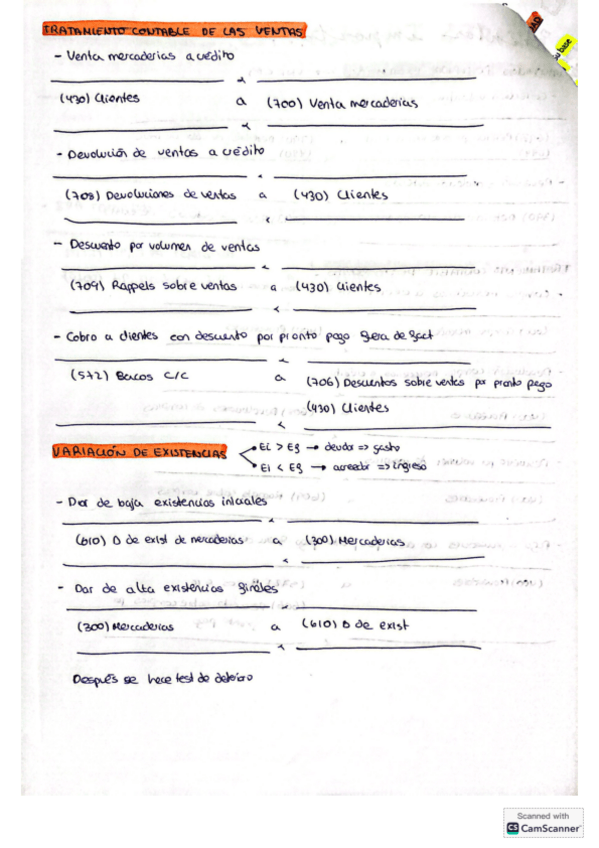 TRATAMIENTO CONTABLE DE LAS VENTAS
- Venta mercaderias a crédito
(430) Clientes a (700) Venta mercaderias
- Devolución de ventas a crédito
(708) Devoluciones de ventas a (430) Clientes
- Descuento por volumen de ventas
(709) Rappels sobre ventas a (430) Clientes
- Cobro a clientes con descuento por pronto pago fuera de fact
(572) Bancos C/C a (706) Descuentos sobre ventas por pronto pago
(430) Clientes
VARIACIÓN DE EXISTENCIAS
Ei > Ef → deudor => gasto
Ei < Ef → acreedor => ingreso
- Dar de baja existencias iniciales
(610) Δ de exist de mercaderias a (300) Mercaderias
- Dar de alta existencias finales
(300) Mercaderias a (610) Δ de exist
Después se hace test de deterioro
Scanned with
CS CamScanner